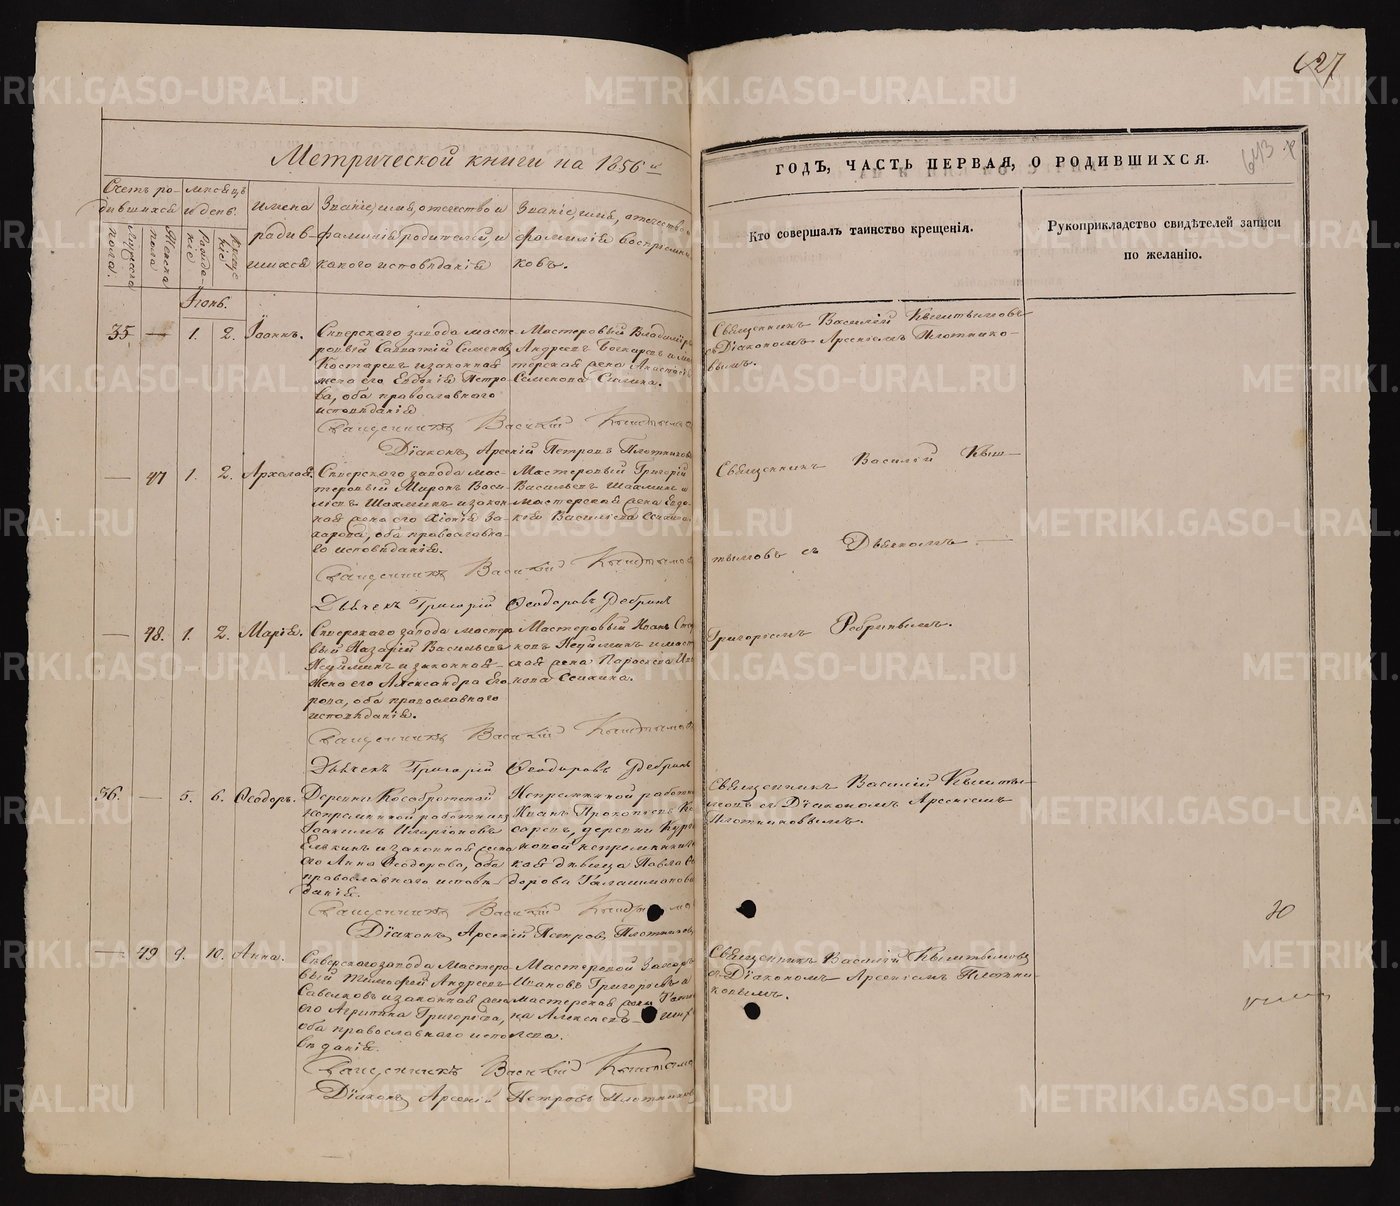 627
643
Метрической книги на 1856й
ГОДЪ, ЧАСТЬ ПЕРВАЯ, О РОДИВШИХСЯ.
Счетъ ро-
дившихся
Мужеска
пола.
Женска
пола
мѣсяцъ
и день.
Рожде-
нія
Креще-
нія
Имена
родив-
шихся
Званіе, имя, отечество и
фамилія родителей, и
какого исповѣданія
Званіе, имя, отечество
фамилія воспріемни
ковъ.
Кто совершалъ таинство крещенія.
Рукоприкладство свидѣтелей записи
по желанію.
Іюнь.
35 — 1. 2. Іоаннъ.
Сѣверскаго завода масте
ровый Савватій Семеновъ
Костаревъ и законная
жена его Евдокія Петро-
ва, оба православнаго
исповѣданія
Мастеровый Владиміръ
Андреевъ Бочкаревъ и ма
терская жена Анастасія
Семенова Силина.
Священникъ Василій Кыштымовъ
съ Діакономъ Арсеніемъ Плотнико-
вымъ.
Священникъ Василій Кыштымо
Діаконъ Арсеній Петровъ Плотников
— 47 1. 2.
Сѣверскаго завода мас-
теровый Миронъ Васи-
льевъ Шахминъ и закон
ная жена его Хіонія За-
харова, оба православна-
го исповѣданія.
Мастеровый Григорій
Васильевъ Шахминъ и
мастерская жена Евдо
кія Васильева
Священникъ Василій Кыш-
тымовъ съ Дьячкомъ —
Григоріемъ Ребринымъ.
Священникъ Василій Кыштымов
Дьячекъ Григорій Ѳеодоровъ Ребринъ
— 48. 1. 2. Марія.
Сѣверскаго завода мастеро
вый Назарій Васильевъ
и законная
жена его Александра Его-
рова, оба православнаго
исповѣданія.
Мастеровый Иванъ
и маст
ская жена Параскева
Священникъ Василій Кыштымов
Дьячекъ Григорій Ѳеодоровъ Ребринъ
36. — 5. 6. Ѳеодоръ.
Деревни Кособродской
непремѣнной работникъ
Іоакимъ Иларіоновъ
Елькинъ и законная жена
его Анна Ѳеодорова, оба
православнаго исповѣ-
данія.
Непремѣнной работни
Иванъ Прокопьевъ Ко
саревъ, деревни Курга
новой непремѣнничес
кая дѣвица Павла Ѳе
дорова
Священникъ Василій Кышты-
мовъ съ Діакономъ Арсеніемъ
Плотниковымъ.
Священникъ Василій Кыштымо
Діаконъ Арсеній Петровъ Плотников
— 49 9. 10. Анна.
Сѣверскаго завода мастеро
вый Тимофей Андреевъ
Савельевъ и законная жена
его Агрипина Григорьева,
оба православнаго испо
вѣданія.
Мастеровой Захаръ
Ивановъ Григорьевъ и
мастерская жена
Алексѣева
Священникъ Василій Кыштымовъ
съ Діакономъ Арсеніемъ Плотни-
ковымъ.
Священникъ Василій Кыштымо
Діаконъ Арсеній Петровъ Плотников
METRIKI.GASO-URAL.RU